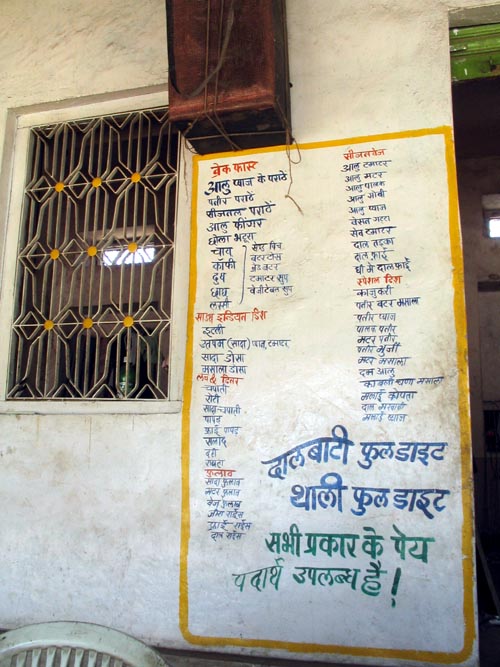 ब्रेक फास्ट
आलु प्याज के पराठे
पनीर पराठे
सीजनल पराठे
आलु फींगर
छोला भटुरा
चाय
कॉफी
दुध
छाछ
लस्सी
सेण्ड विच
बटर टोस
ब्रेड बटर
टमाटर सुप
वेजीटेबल सुप
साउथ इन्डियन डिश
इडली
उतपम (सादा) प्याज, टमाटर
सादा डोसा
मसाला डोसा
लंच & डिनर
चपाती
रोटी
सादा चपाती
पापड
फ्राई पापड
सलाद
दही
रायता
पुलाव
सादा पुलाव
मटर पुलाव
वेज पुलाव
जीरा राईस
फ्राई राईस
दाल राईस
सीजनवेज
आलु टमाटर
आलु मटर
आलु पालक
आलु गोबी
आलु प्याज
बेसन गट्टा
सेव टमाटर
दाल तडका
दाल फ्राई
घी मे दाल फ्राई
स्पेशल डिश
काजुकरी
पनीर बटर मसाला
पनीर प्याज
पालक पनीर
मटर पनीर
पनीर भुर्जी
मटर मसाला
दम आलु
काबली चणा मसाला
मलाई कोफ्ता
दाल मखानी
मलाई प्याज
दालबाटी फुलडाइट
थाली फुलडाइट
सभी प्रकार के पेय
पदार्थ उपलब्ध है!